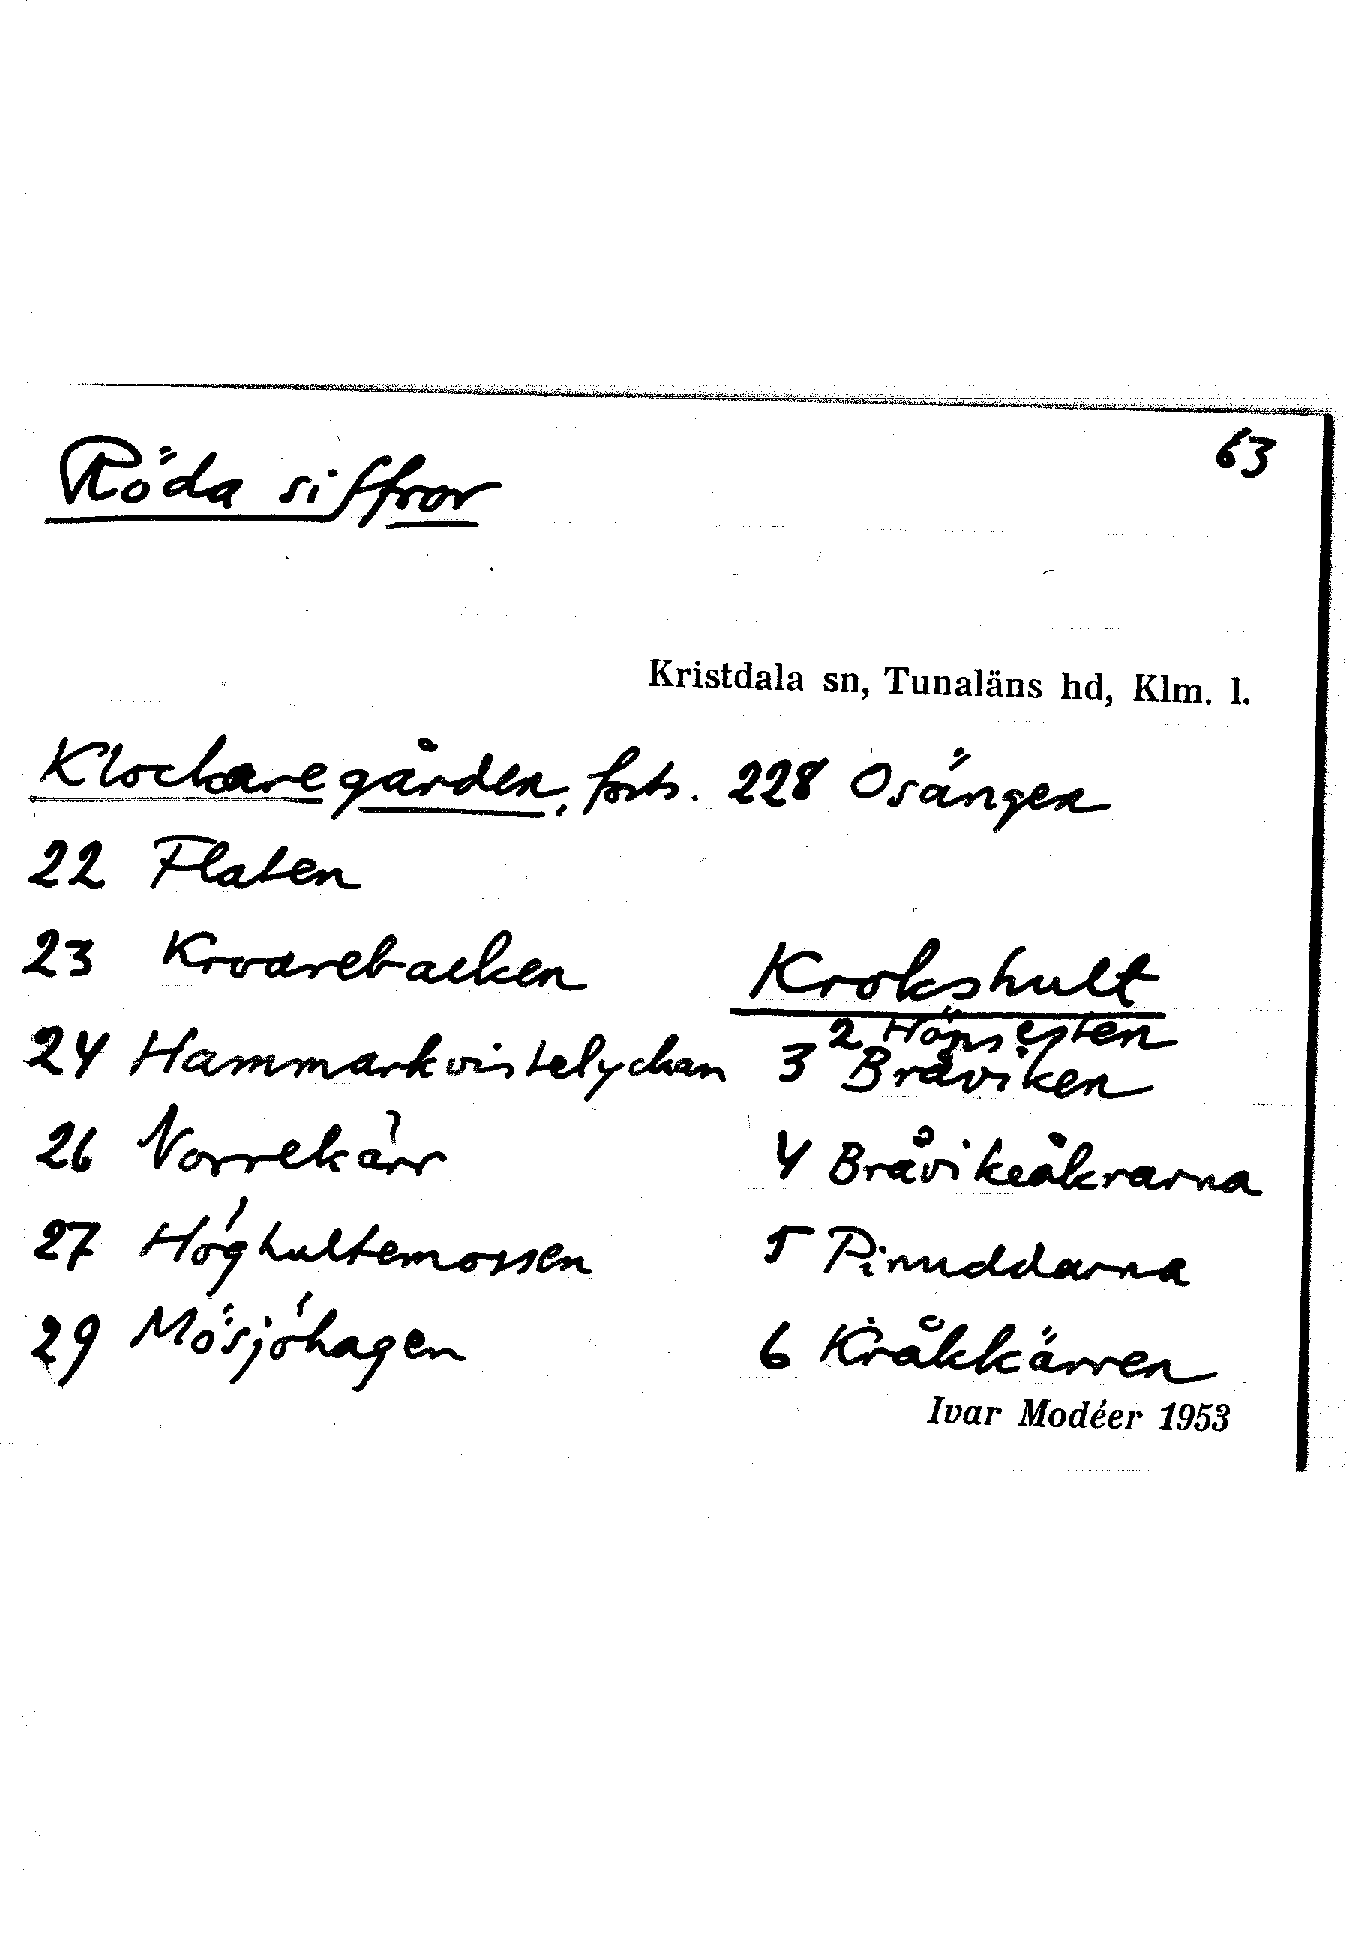 63
Röda siffror
Kristdala sn, Tunaläns hd, Klm. l.
Klockaregården, forts. 228 Osängen
22 Flaten
23 Kroarebacken
24 Hammarkvistelyckan
26 Norrekärr
27 Höghultemossen
29 Mösjöhagen
Krokshult
2
3 Bråviken
4 Bråvikeåkrarna
5 Pinuddarna
6 Kråkkärren
Ivar Modéer 1953